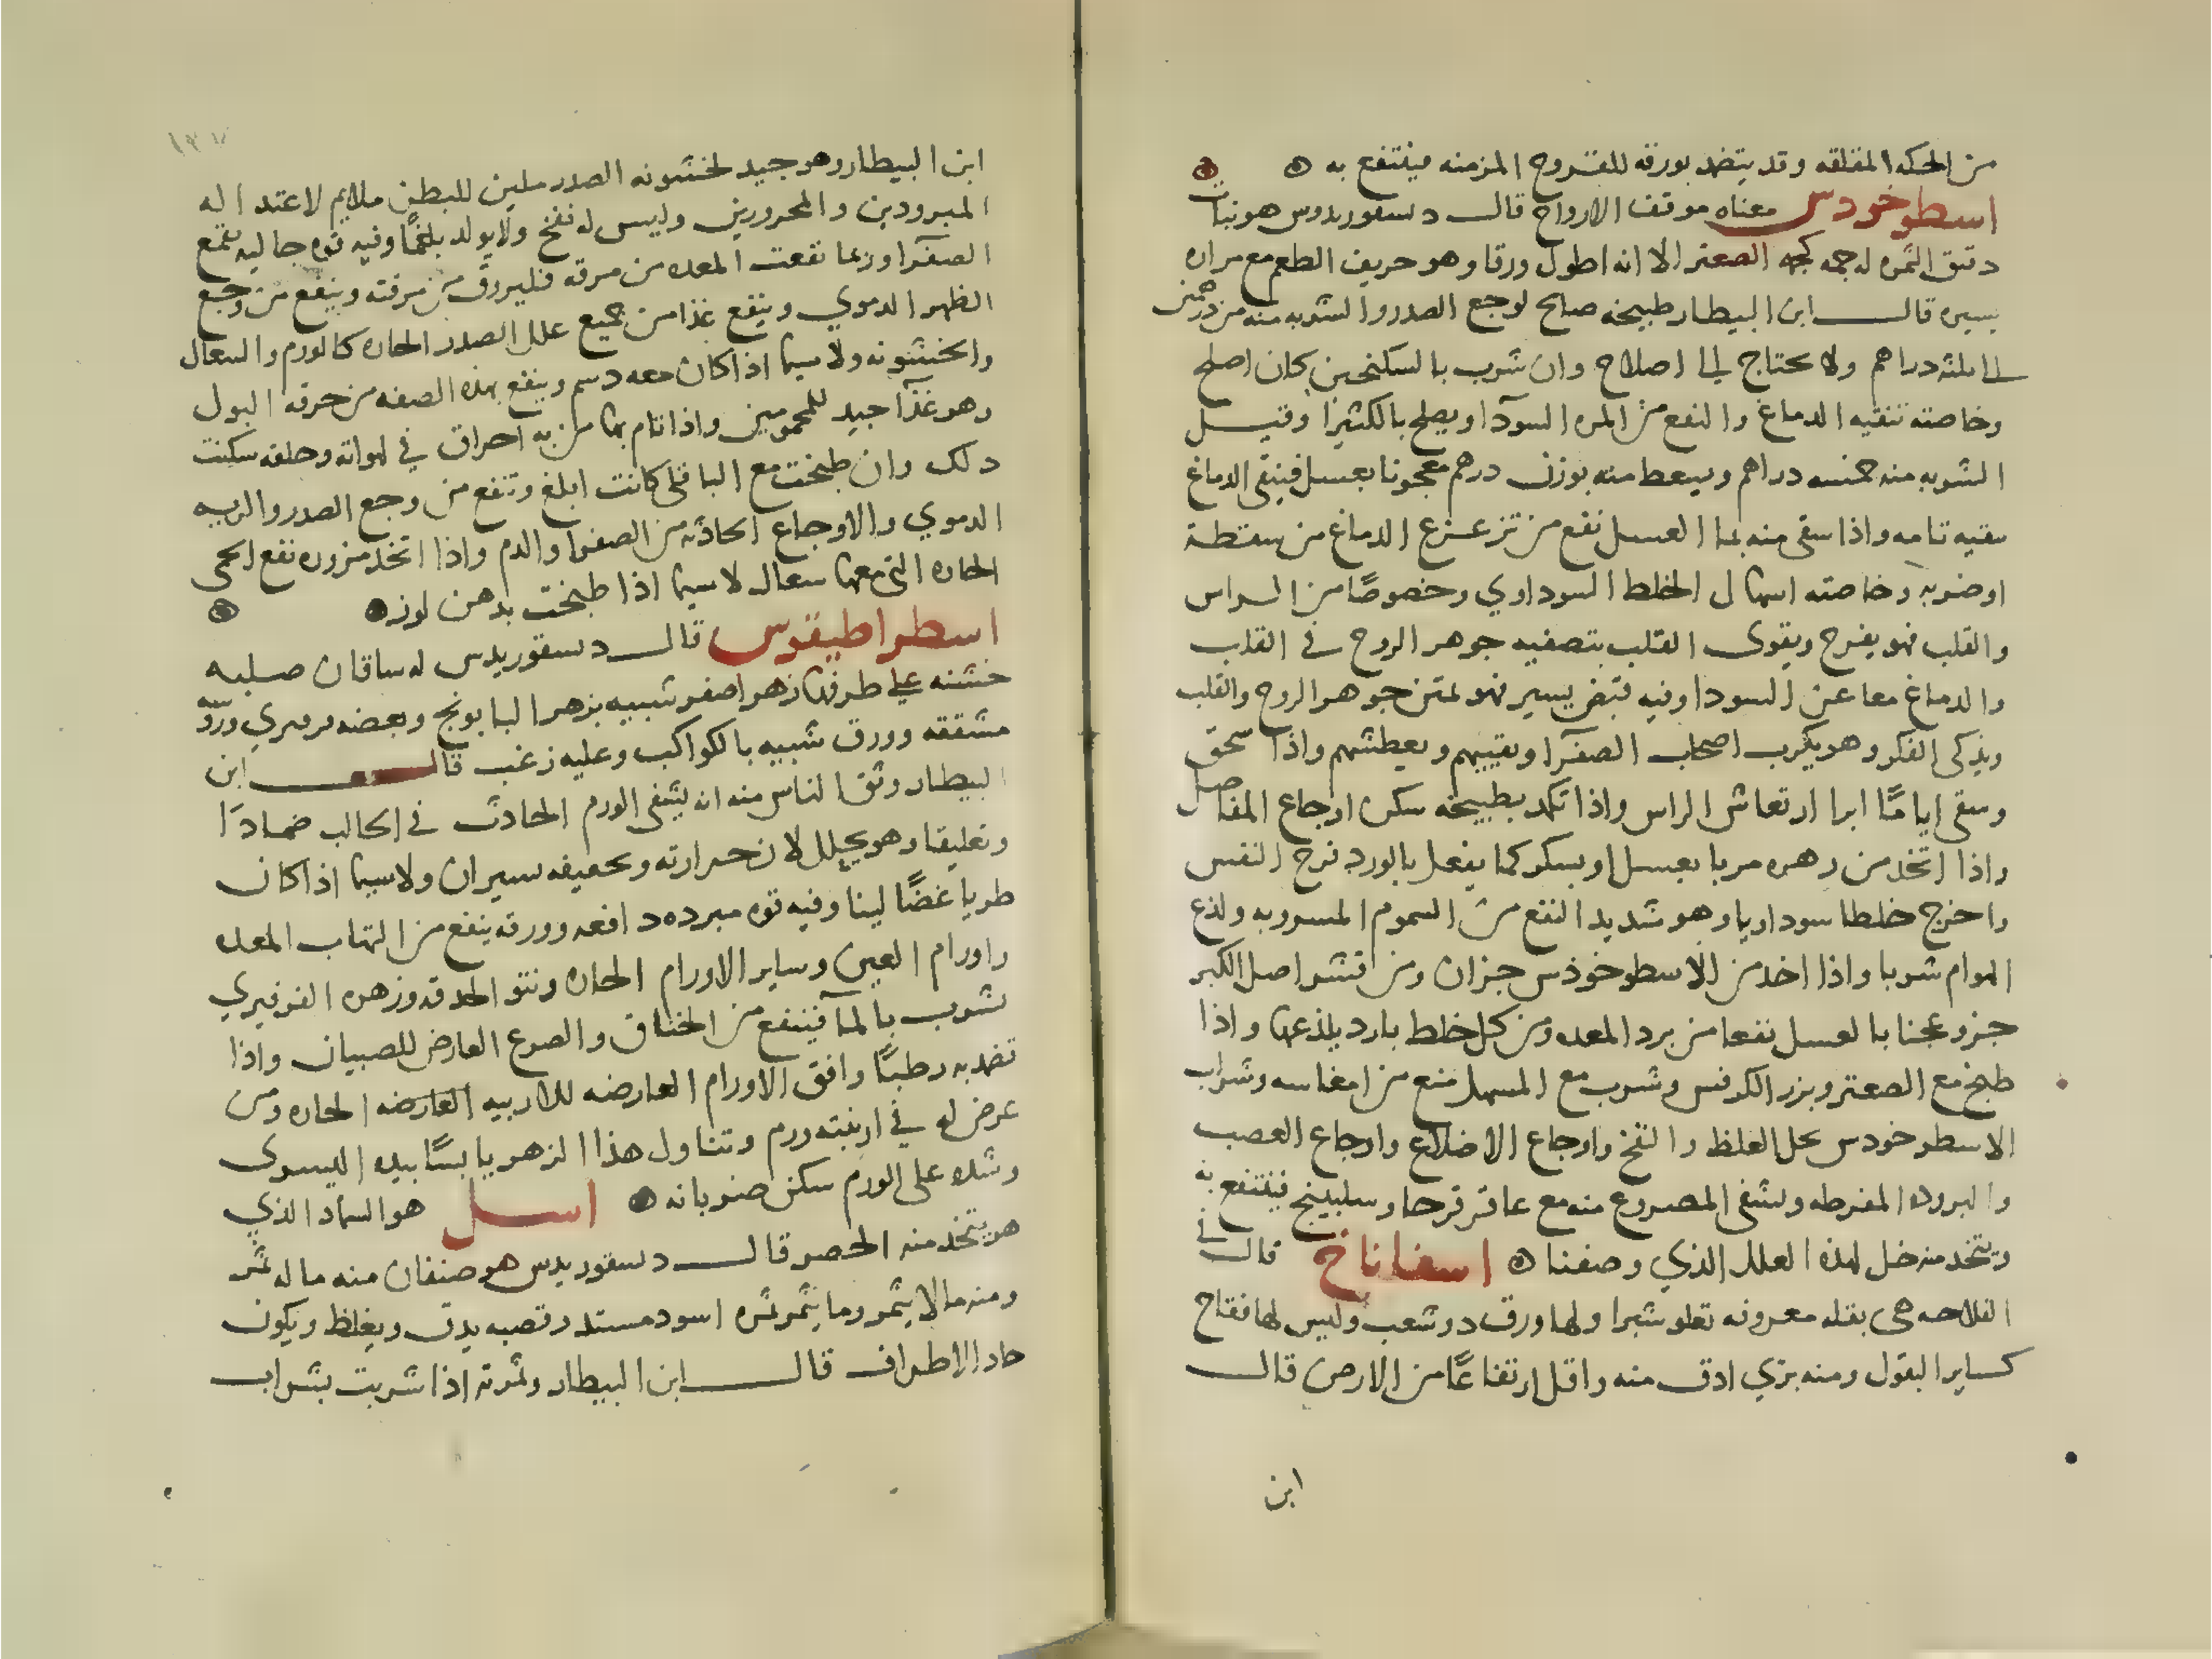 من الحكه المقلقه وقد يتضمد بورقه للقروح المزمنه فينتفع به
اسطوخودس معناه موقف الارواح قالــ دسقوريدوس هو نبات
دقيق الثمره له جمه كجمه الصعتر الا انه اطول ورقا وهو حريف الطعم مع مراره
يسيره قالــ ابن البيطار طبيخه صالح لوجع الصدر والشربه منه من درهمين
الى ثلثه دراهم ولا يحتاج الى اصلاح وان شرب بالسكنجبين كان اصلح
وخاصته تنقيه الدماغ والنفع من المره السودآ ويصلح بالكثيرا وقيــل
الشربه منه خمسه دراهم ويسعط منه بوزن درهم معجونا بعسل فينقى الدماغ
تنقيه تامه واذا سقى منه بما العسل نفع من تزعزع الدماغ من سقطة
او ضربه وخاصته اسهال الخلط السوداوي وخصوصًا من الراس
والقلب فهو يفرح ويقوى القلب بتصفيه جوهر الروح في القلب
والدماغ معا عن السودا وفيه قبض يسير فهو لمتن جوهر الروح والقلب
ويذكى الفكر وهو يكرب اصحاب الصفرآ ويقييهم ويعطشهم واذا سحق
وسقى ايامًا ابرا ارتعاش الراس واذا تكمد بطبيخه سكن اوجاع المفاصل
واذا اتخذ من زهره مربا بعسل او بسكر كما يفعل بالورد فرح النفس
واخرج خلطا سوداويا وهو شديد النفع من السموم المشروبه ولذع
الهوام شربا واذا اخد من الاسطوخوذس جزان ومن قشر اصل الكبر
جزو عجنا بالعسل نفعا من برد المعده ومن كل خلط بارد يلذعها واذا
طبخ مع الصعتر وبزر الكرفس وشرب مع المسهل منع من امغاسه وشراب
الاسطوخودس يحل الغلظ والنفخ واوجاع الاضلاع واوجاع العصب
والبروده المفرطه ويشفى المصروع منه مع عاقر قرحا وسكبينج فينتفع به
ويتخذ منه خل لهذه العلل الذي وصفنا اسفاناخ قالــ في
الفلاحه هى بقله معروفه تعلو شبرا ولها ورق ذو شعب وليس لها نفاخ
كساير البقول ومنه بري ادق منه واقل ارتفاعًا من الارض قالــ
ابن
١٣٧
ابن البيطار وهو جيد لخشونه الصدر ملين للبطن ملايم لاعتداله
المبرودين والمحرورين وليس له نفخ ولا يولد بلغمًا وفيه قوه جاليه تقمع
الصفرآ وربما نفعت المعده من مرقه فليروق من مرقته وينفع من وجع
الظهر الدموي وينفع غذا من جميع علل الصدر الحاره كالورم والسعال
والخشونه ولا سيما اذا كان معه دسم وينفع بهذه الصفه من حرقه البول
وهو غذآ جيد للمحمومين واذا تام بها من به احراق في لهواته وحلقه سكنت
دلك وان طبخت مع الباقلى كانت ابلغ وتنفع من وجع الصدر والريه
الدموي والاوجاع الحادثه من الصفرآ والدم واذا اتخذ مزوره نفع الحمى
الحاره التي معها سعال لا سيما اذا طبخت بدهن لوز
اسطراطيقوس قالــ دسقوريدس له ساقان صلبه
خشنه على طرفها زهر اصفر شبيه بزهر البابونج وبعضه فرفيري وروسه
مشققه وورق شبيه بالكواكب وعليه زغب قالــ ابن
البيطار وثق الناس منه انه يشفى الورم الحادث في الحالب ضمادًا
وتعليقا وهو يحلل لان حرارته وتجفيفه يسيران ولا سيما اذا كان
طريا غضًا لينا وفيه قوه مبرده دافعه وورقه ينفع من التهاب المعده
واورام العين وساير الاورام الحاره ونتو الحدقه وزهره الفرفيري
يشرب بالمآ فينفع من الخناق والصرع العارض للصبيان واذا
تضمد به رطبًا وافق الاورام العارضه للاربيه العارضه الحاره ومن
عرض له في اربيته ورم وتناول هذا الزهر يابسًا بيده اليسرى
وشده على الورم سكن ضربانه اسل هو السمار الذي
هو يتخذ منه الحصر قالــ دسقوريدس هو صنفان منه ما له ثمر
ومنه ما لا يثمر وما يثمر ثمره اسود مستدر وقصبه يدق ويغلظ ويكون
حاد الاطراف قالــ ابن البيطار وثمرته اذا شربت بشراب